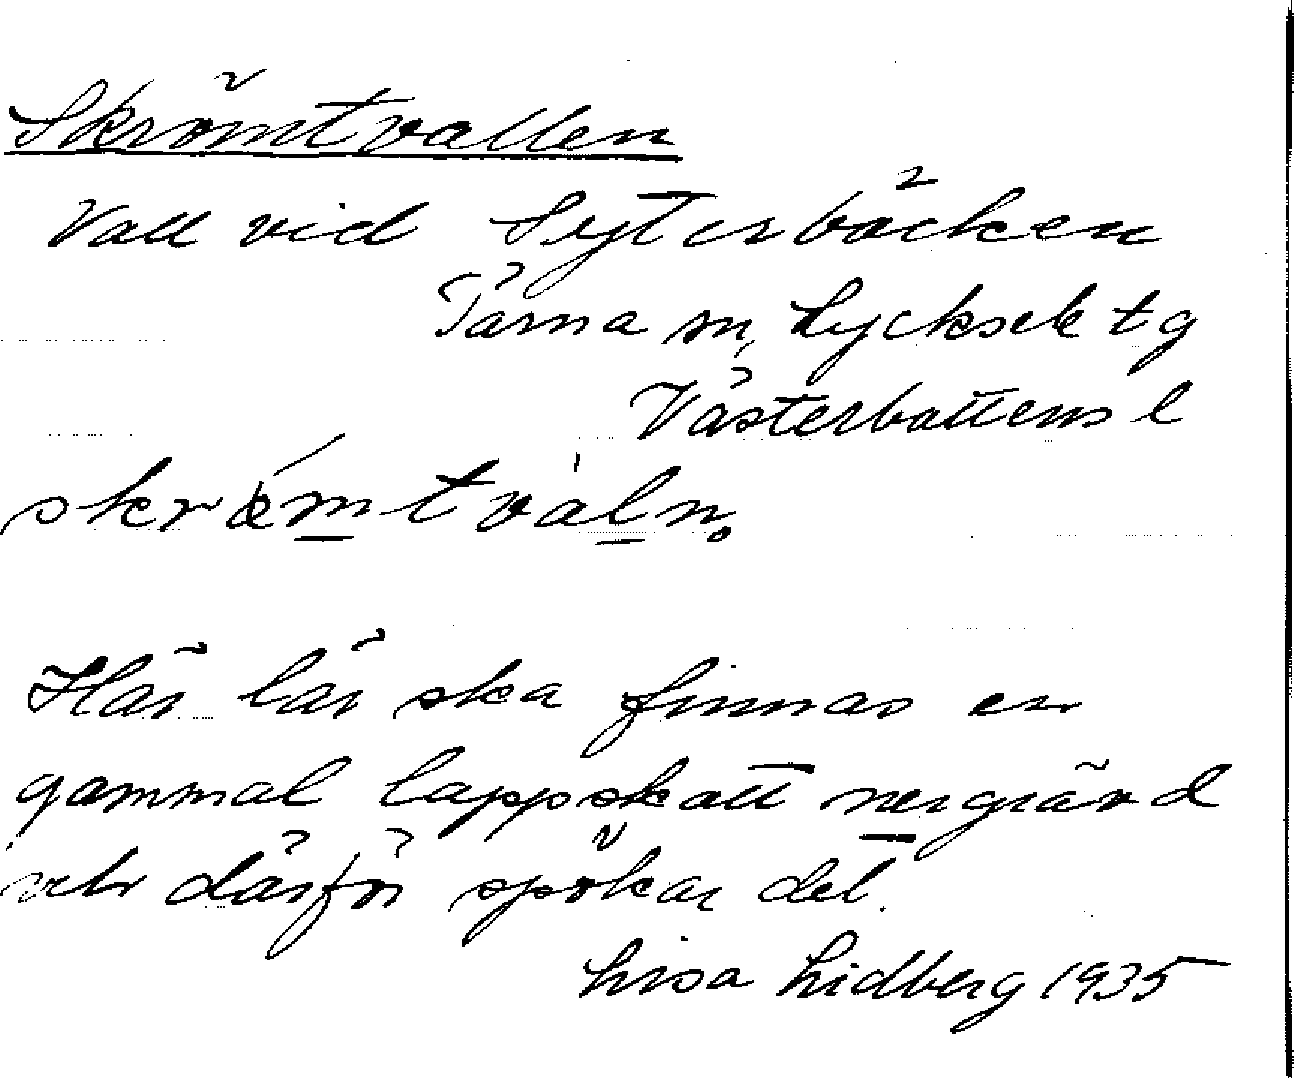 Skrömtvallen
Vall vid Syterbäcken
Tärna sn, Lycksele tg
Västerbottens l
skrœ́mtvàln.
Här lär ska finnas en
gammal lappskatt nergrävd
och därför spökar det.
Lisa Lidberg 1935